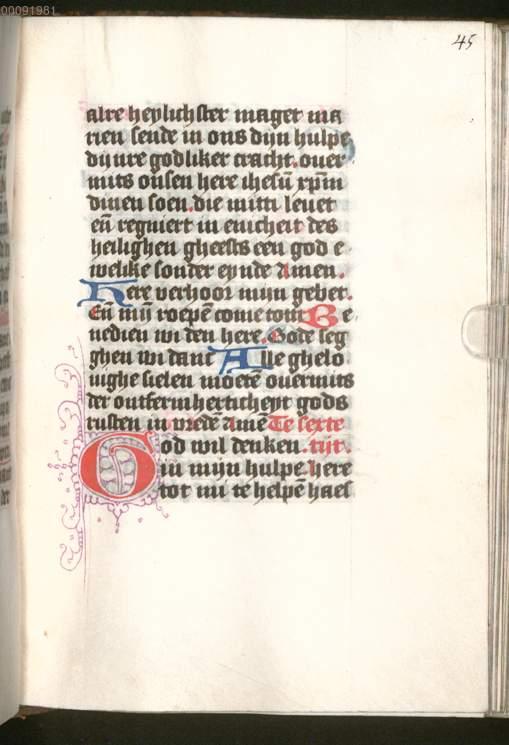 00091981
45
alre heylichster maget ma
rien sende in ons dijn hulpe
dijnre godliker cracht. ouer
mits onsen here ihesū xp̄m
dinen soen. die mitti leuet
en̄ regniert in ewicheit des
heilighen gheests een god e
welike sonder eynde Amen.
Here verhoor mijn gebet.
En̄ mij roepē come totti Be
nedien wi den here. Gode seg
ghen wi danc Alle ghelo
uighe sielen moetē ouermits
der ontfermherticheyt gods
rusten in vredē Amē Te sexte
God wil denken. tijt.
in mijn hulpe. here
tot mi te helpē haes